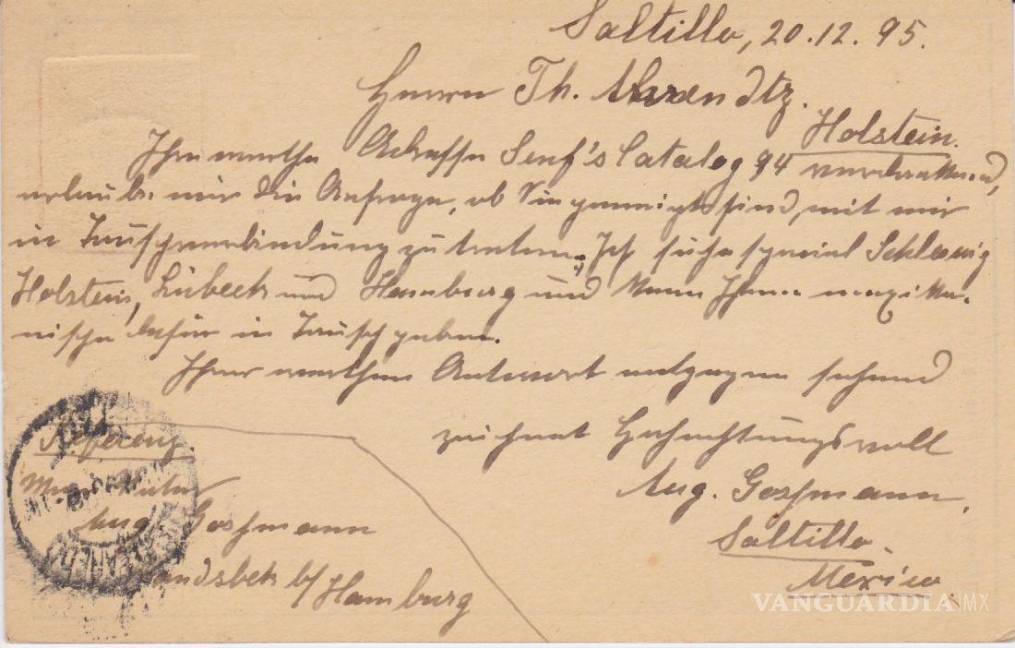 Saltillo, 20.12.95.
Herrn Th. Ahrendtz.
Holstein.
Ihre werthe Adresse Senf's Catalog 94 verdankend,
erlaube mir die Anfrage, ob Sie geneigt sind, mit mir
in Tauschverbindung zu treten. Ich suche special Schleswig
Holstein, Lübeck und Hamburg und kann Ihnen mexika-
nische dafür in Tausch geben.
Ihrer werthen Antwort entgegen sehend
zeichnet Hochachtungsvoll
Aug. Gossmann,
Saltillo.
Mexico.
Referenz
Mein Vater
Aug. Gossmann
Wandsbek b/Hamburg
VANGUARDIA MX